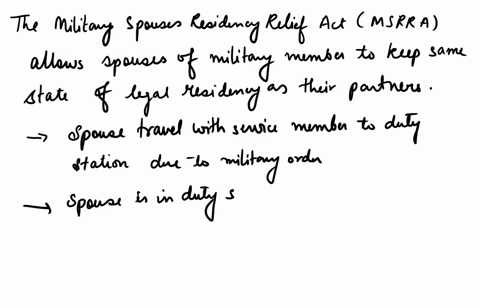 The Military Spouses Residency Relief Act (MSRRA)
allows spouses of military member to keep same
state of legal residency as their partners.
→ Spouse travel with service member to duty
station due to military order
→ Spouse is in duty s